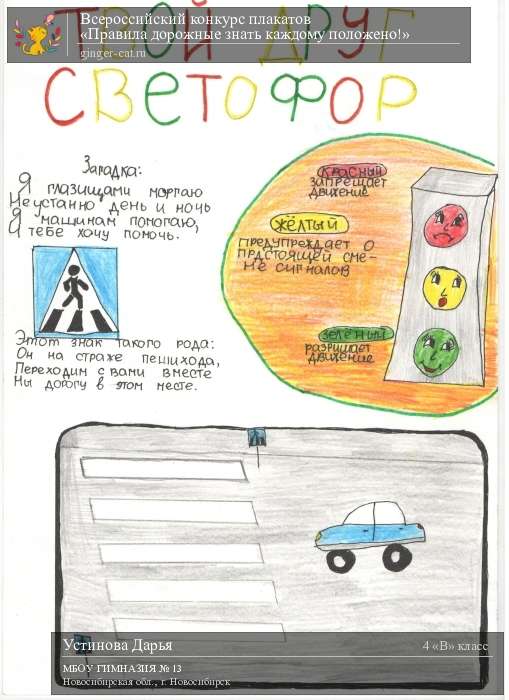 Всероссийский конкурс плакатов
«Правила дорожные знать каждому положено!»
ginger-cat.ru
ТВОЙ ДРУГ
СВЕТОФОР
Загадка:
Я глазищами моргаю
Неустанно день и ночь
Я машинам помогаю,
И тебе хочу помочь.
КРАСНЫЙ
ЗАПРЕЩАЕТ
ДВИЖЕНИЕ
ЖЁЛТЫЙ
ПРЕДУПРЕЖДАЕТ О
ПРДСТОЯЩЕЙ СМЕ-
НЕ СИГНАЛОВ
ЗЕЛЁНЫЙ
РАЗРИШАЕТ
ДВИЖЕНИЕ
Этот знак такого рода:
Он на страже пешихода,
Переходим с вами вместе
Мы дорогу в этом месте.
Устинова Дарья
4 «В» класс
МБОУ ГИМНАЗИЯ № 13
Новосибирская обл., г. Новосибирск